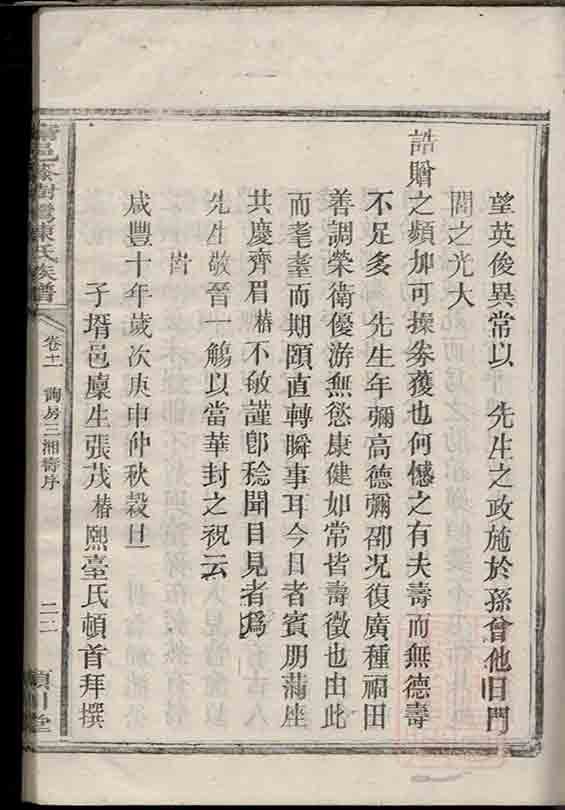 望英俊異常以　先生之政施於孫曾他日門
閭之光大
誥贈之頻加可操劵獲也何憾之有夫壽而無德壽
不足多　先生年彌高德彌邵況復廣種福田
善調榮衛優游無慾康健如常皆壽徵也由此
而耄耋而期頤直轉瞬事耳今日者賓朋滿座
共慶齊眉椿不敏謹卽稔聞目見者爲
先生敬晉一觴以當華封之祝云
旹
咸豐十年歲次庚申仲秋穀旦
子壻邑廩生張茂椿熙臺氏頓首拜撰
邑 樹灣陳氏族譜
卷十一
詢房三湘壽序
二二
潁川堂